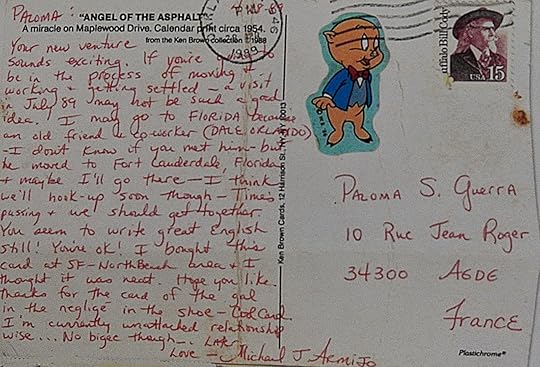 PALOMA:
"ANGEL OF THE ASPHALT"
A miracle on Maplewood Drive. Calendar print circa 1954.
from the Ken Brown collection © 1988
Your new venture
sounds exciting. If you're
be in the process of moving +
working + getting settled - a visit
in July 89 may not be such a good
idea! I may go to FLORIDA because
an old friend & co-worker (DALE ORLANDO)
- I don't know if you met him - but
he moved to Fort Lauderdale, Florida
+ maybe I'll go there - I think
we'll hook-up soon though - Time's
passing + we should get together.
You seem to write great English
still! You're ok! I bought this
card at SF-North Beach area + I
thought it was neat. Hope you like.
Thanks for the card of the gal
in the neglige in the shoe - Cool Card.
I'm currently unattached relationship
wise... No bigee though... Later
Love - Michael J Armijo
Ken Brown Cards, 12 Harrison St. NY, NY 10013
1989
Buffalo Bill Cody
USA 15
PALOMA S. GUERRA
10 Rue Jean Roger
34300 AGDE
FRANCE
Plastichrome®